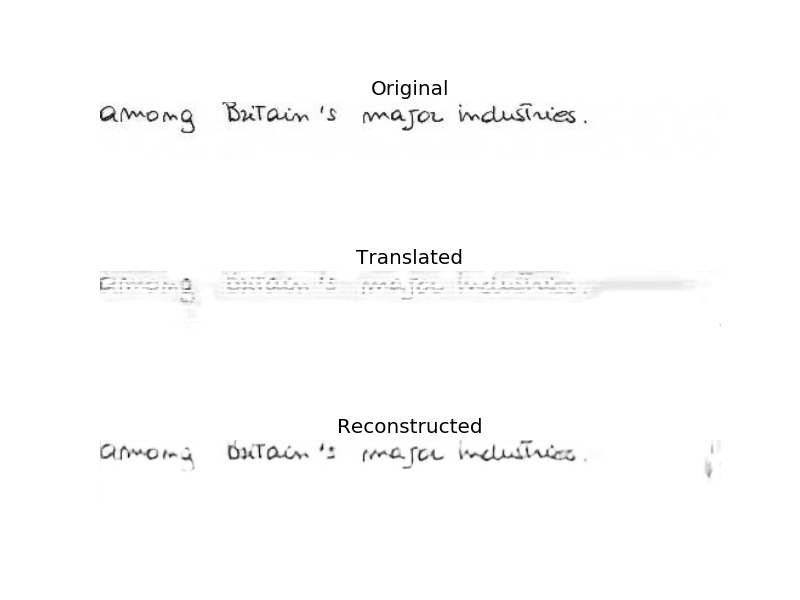 Original
among Britain's major industries.
Translated
among Britain's major industries.
Reconstructed
among Britain's major industries.